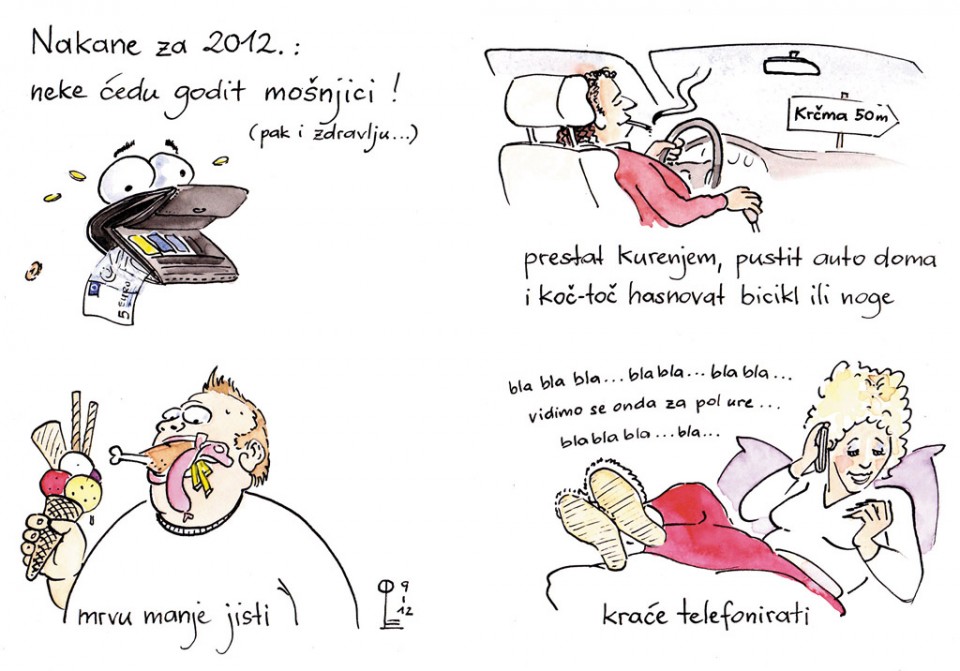 Nakane za 2012.:
neke ćedu godit mošnjici!
(pak i zdravlju...)
5 EURO
Krčma 50m
prestat kurenjem, pustit auto doma
i koč-toč hasnovat bicikl ili noge
mrvu manje jisti
9
12
bla bla bla... bla bla... bla bla...
vidimo se onda za pol ure...
bla bla bla... bla...
kraće telefonirati